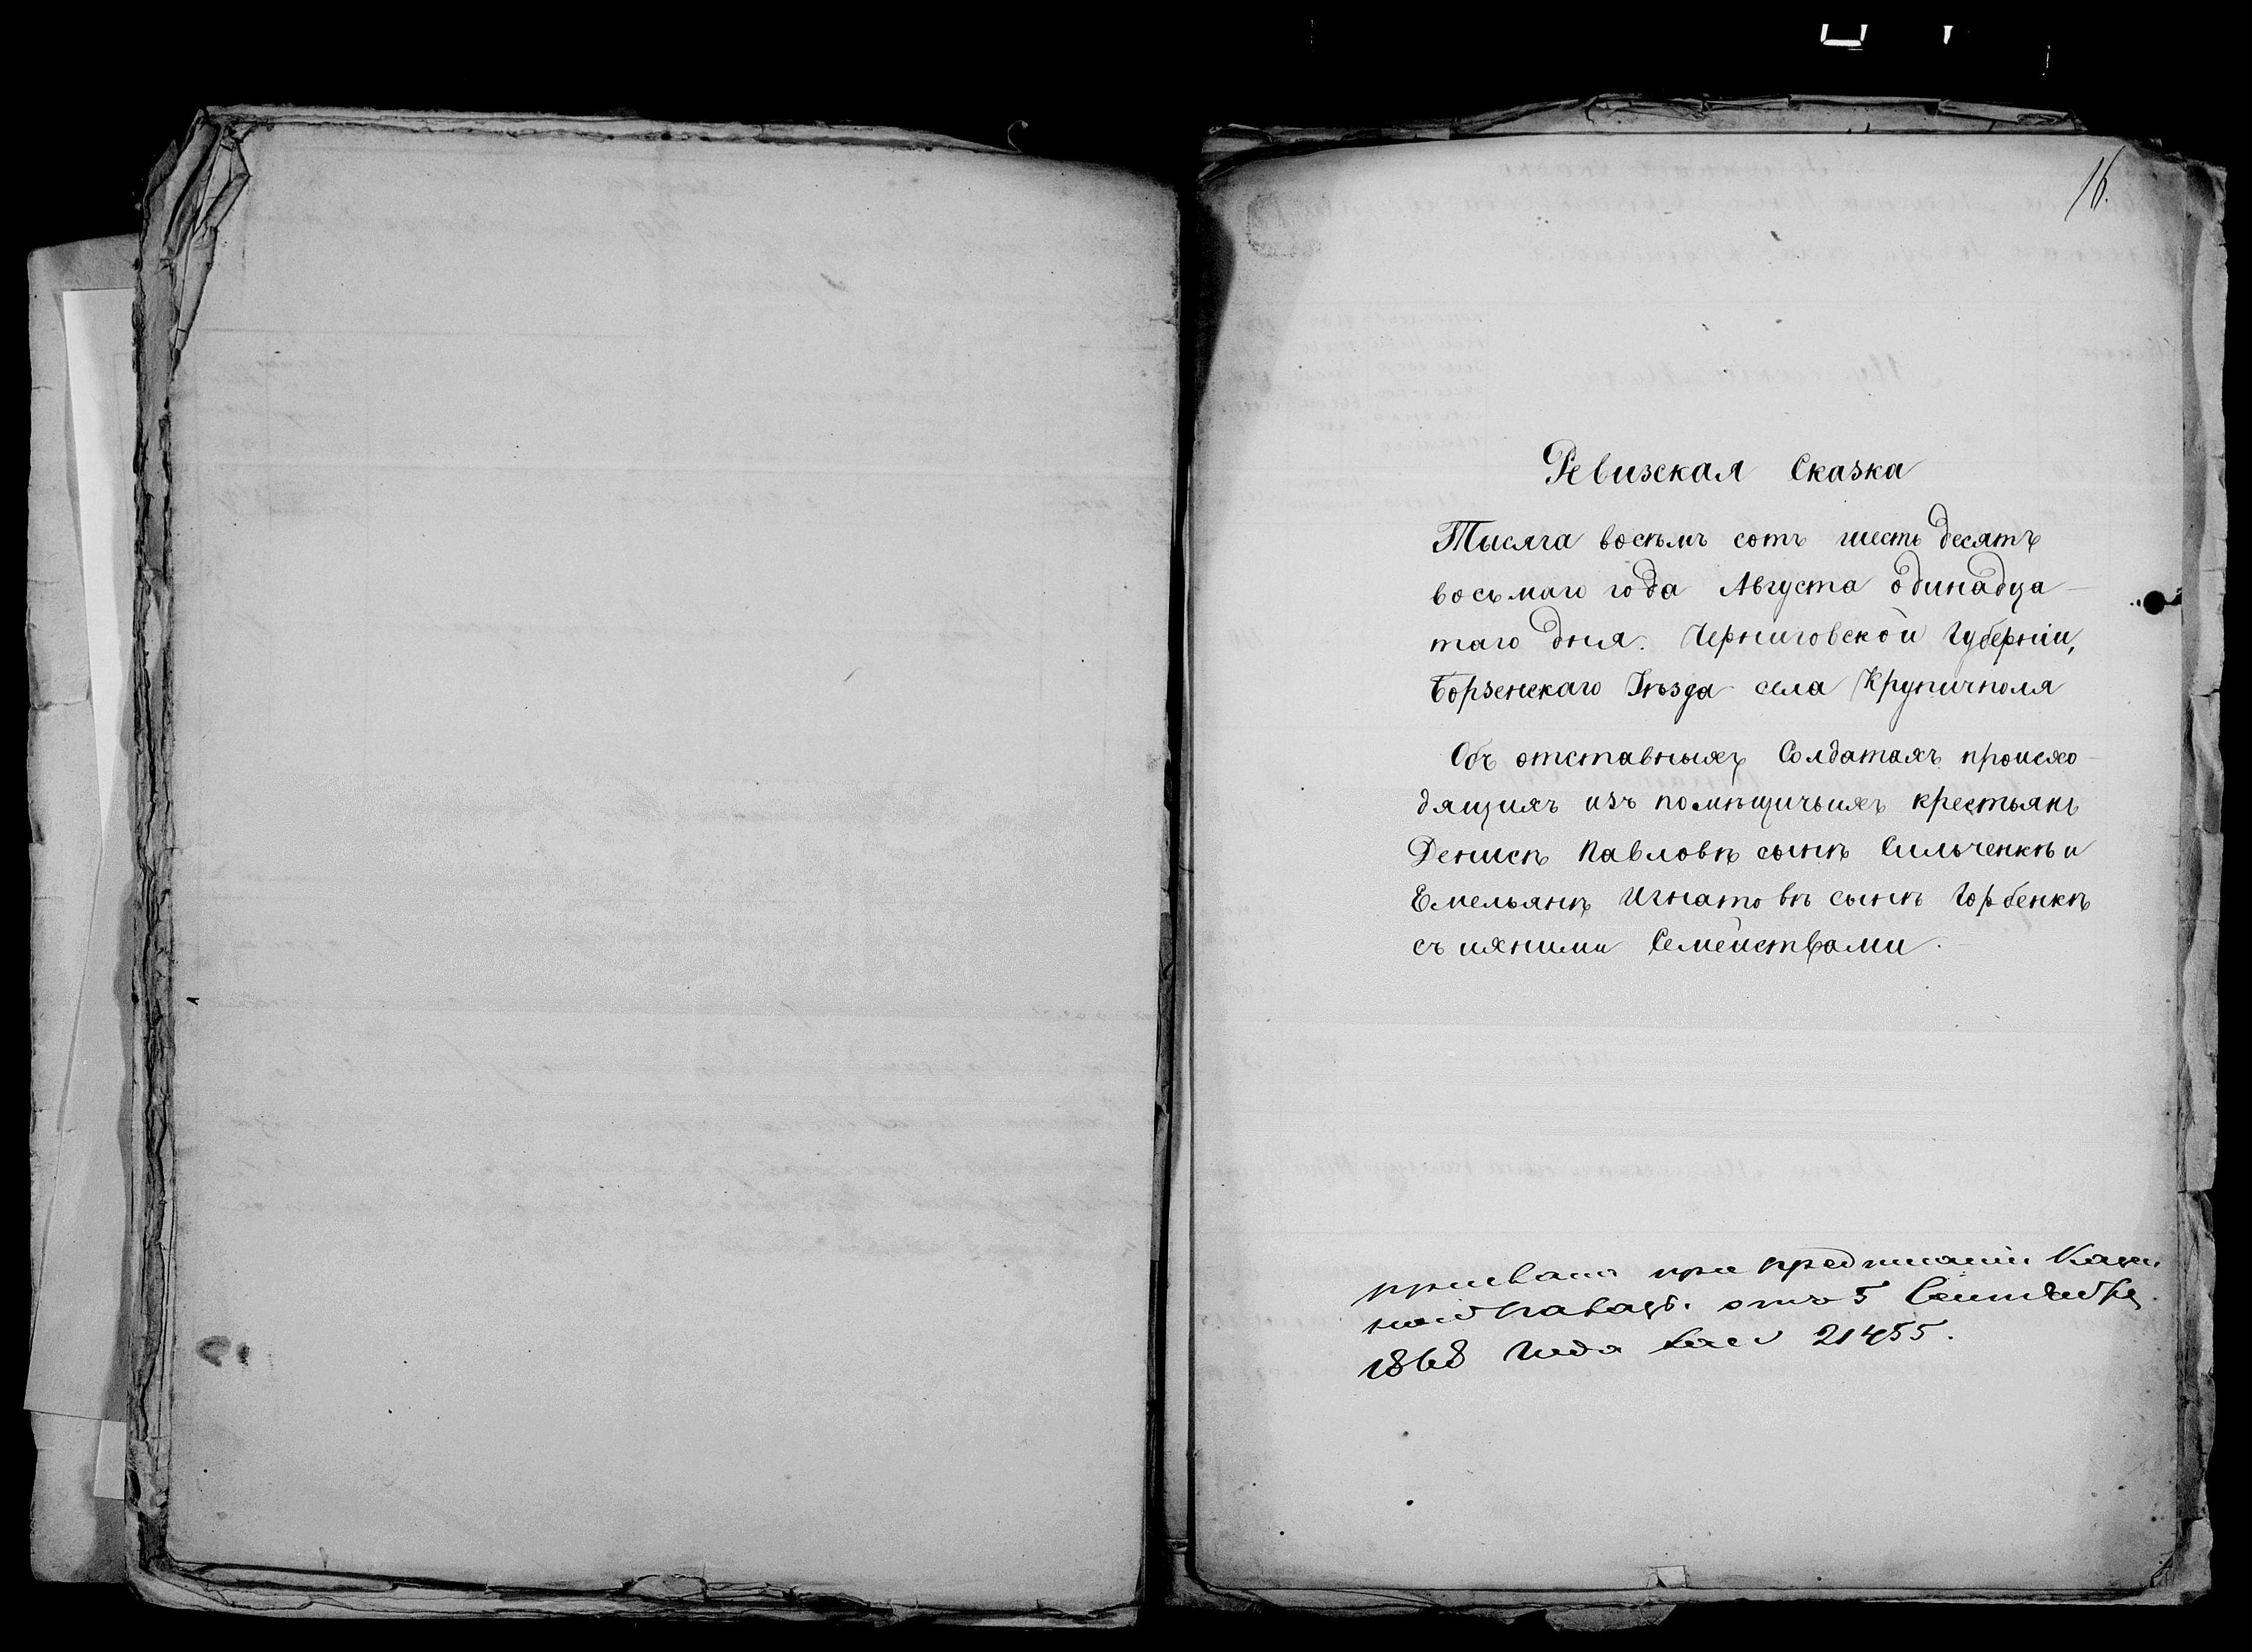 16.
Ревизская Сказка
Тысяча восѣмъ сотъ шесть десятъ
восьмаго года Августа одинадца-
таго дня. Черниговской Губерніи,
Борзенскаго Уѣзда села Крупичполя
Объ отставныхъ Солдатахъ происхо-
дящихъ изъ помѣщичьихъ крестьянъ
Денисѣ Павловѣ сынѣ Сильченкѣ и
Емельянѣ Игнатовѣ сынѣ Горбенкѣ
съ ихними Семействами.
при предписаніи Казен
ной Палаты. отъ 5 Сентября
1868 года 21455.